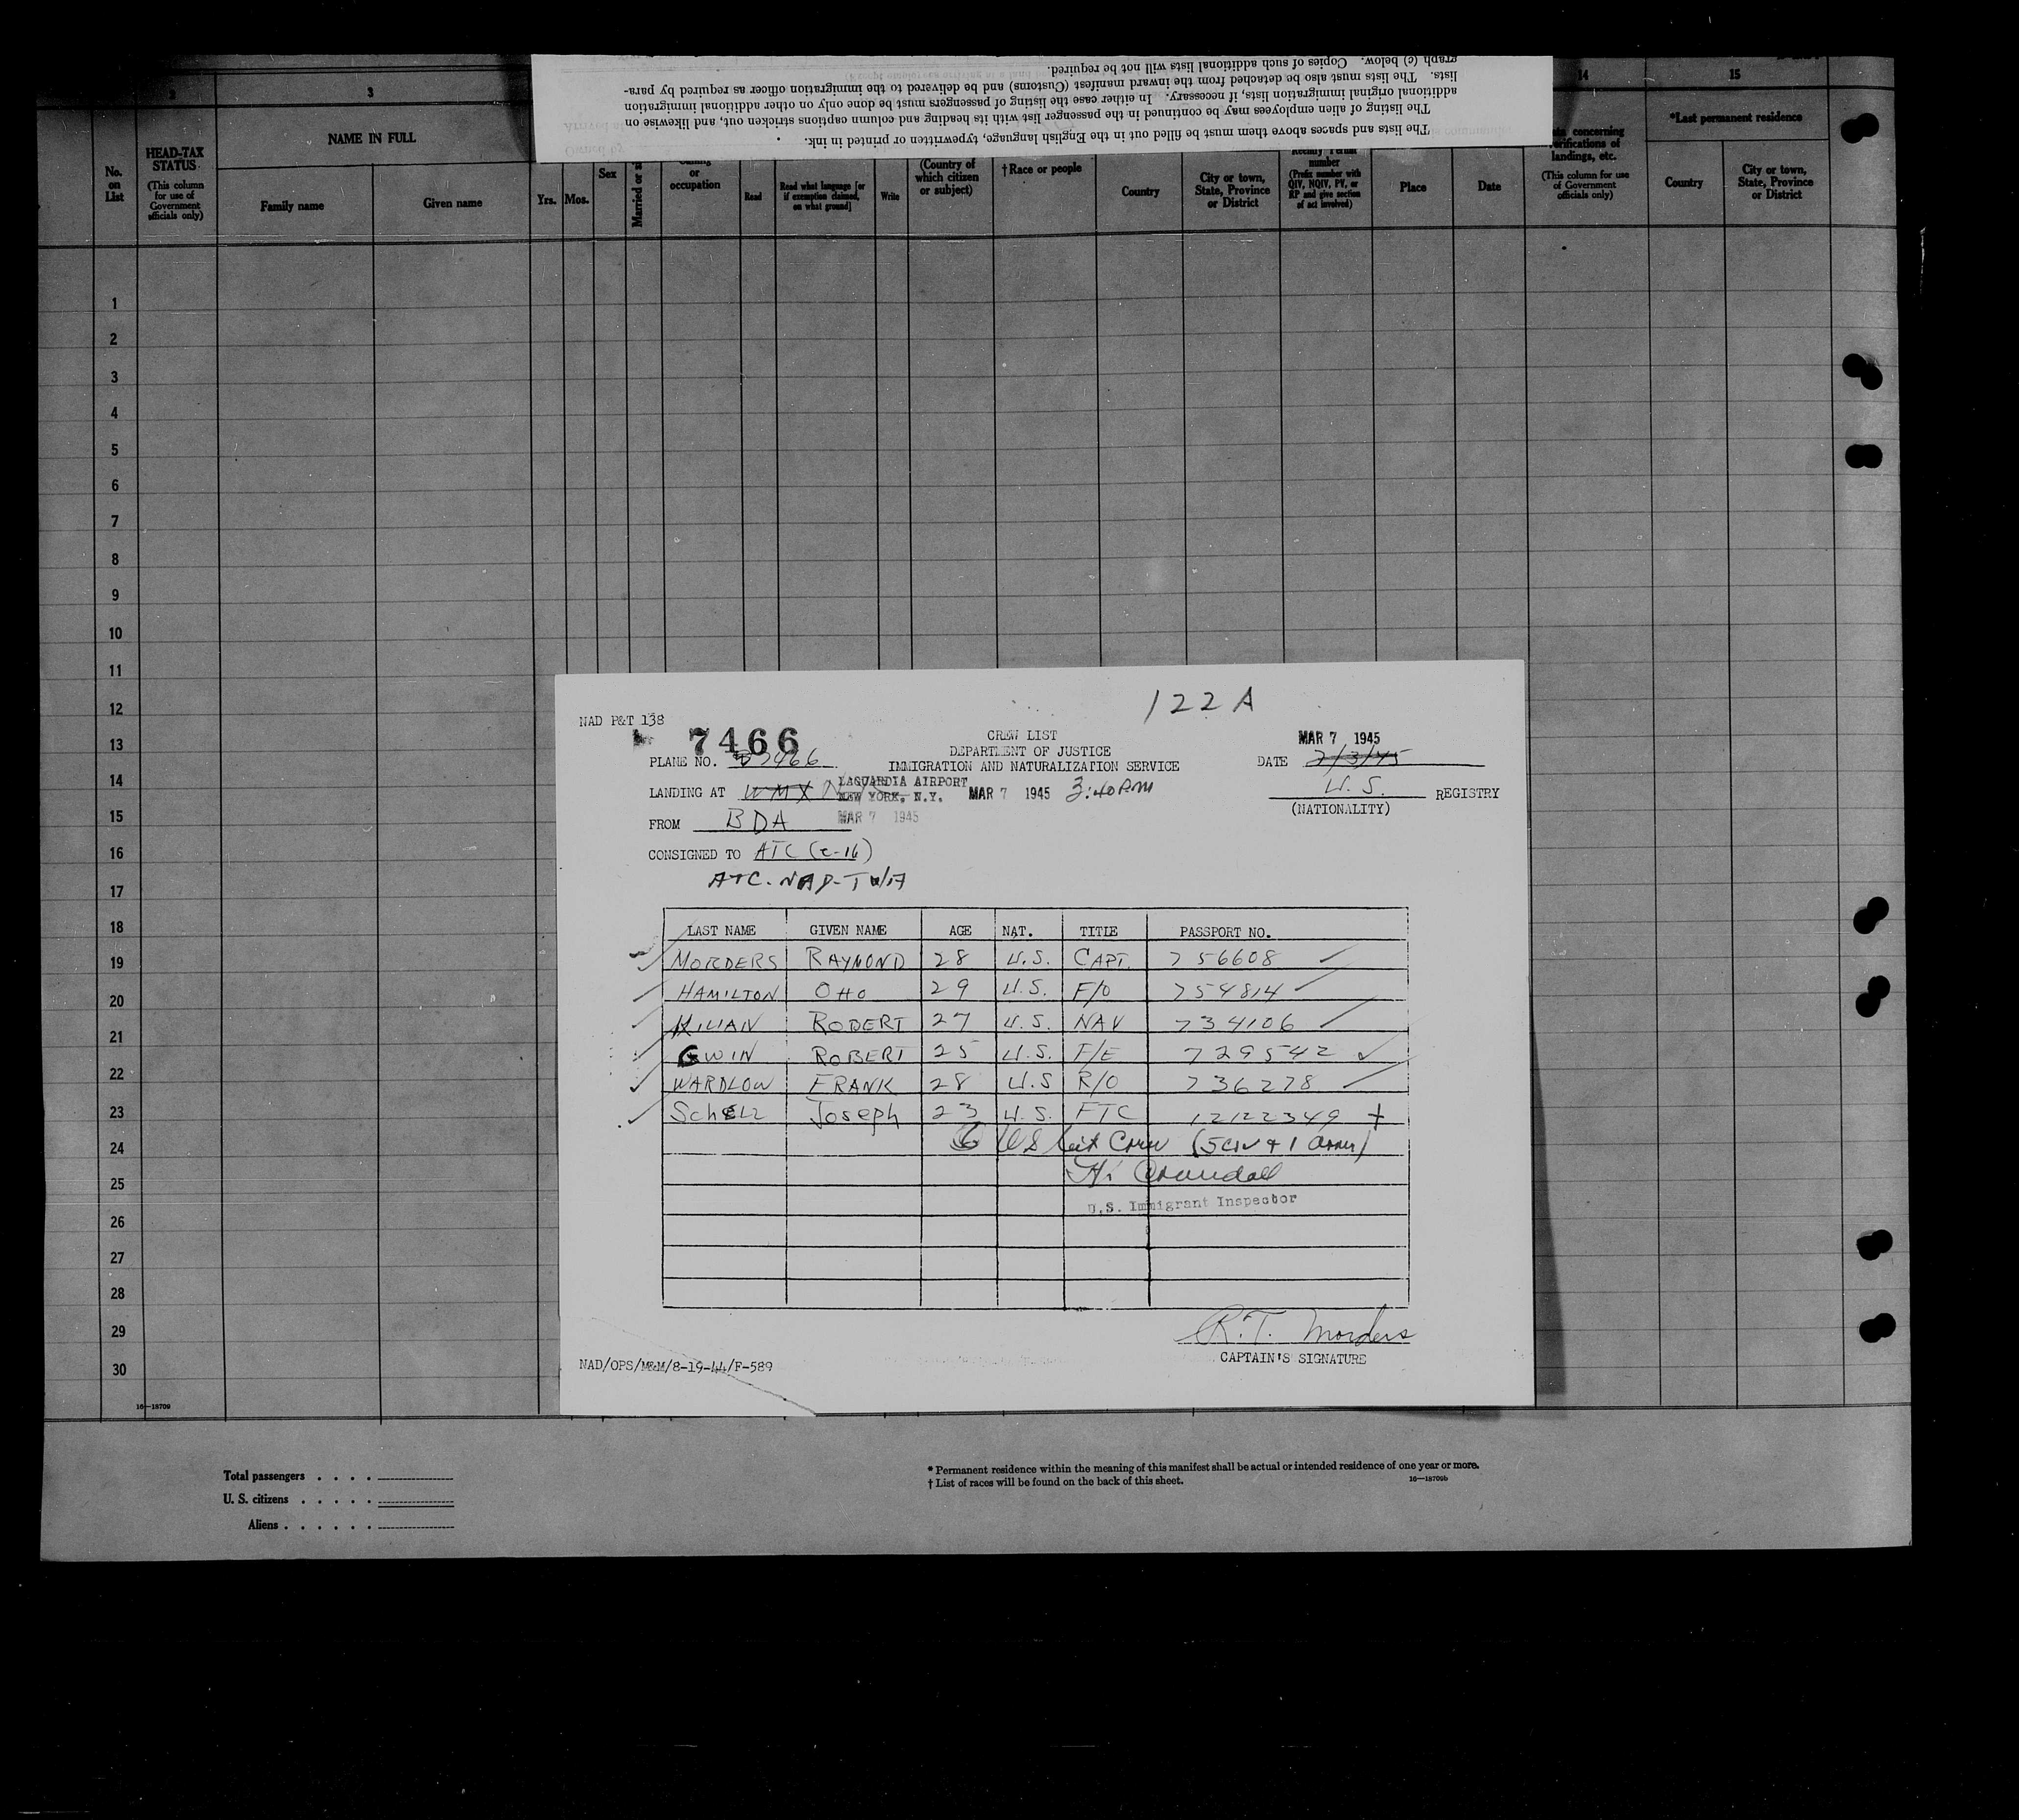 The lists and spaces above them must be filled out in the English language, typewritten or printed in ink.
The listing of alien employees may be continued in the passenger list with its heading and column captions stricken out, and likewise on
additional original immigration lists, if necessary. In either case the listing of passengers must be done only on other additional immigration
lists. The lists must also be detached from the inward manifest (Customs) and be delivered to the immigration officer as required by para-
graph (c) below. Copies of such additional lists will not be required.
2 3 14 15
No. on List
HEAD-TAX STATUS
(This column for use of Government officials only)
NAME IN FULL
Family name Given name
Yrs. Mos. Sex Married or
or occupation
Read Read what language [or if exemption claimed, on what ground] Write
(Country of which citizen or subject)
†Race or people
Country City or town, State, Province or District
number
(Prefix number with QIV, NQIV, PV, or RP and give section of act involved)
Place Date
concerning verifications of landings, etc.
(This column for use of Government officials only)
*Last permanent residence
Country City or town, State, Province or District
1
2
3
4
5
6
7
8
9
10
11
12
13
14
15
16
17
18
19
20
21
22
23
24
25
26
27
28
29
30
16—18709
122 A
NAD P&T 138
7466
CREW LIST
DEPARTMENT OF JUSTICE
IMMIGRATION AND NATURALIZATION SERVICE
MAR 7 1945
PLANE NO. 7466
DATE 2/3/45
LANDING AT WMX N
LAGUARDIA AIRPORT
NEW YORK, N.Y.
MAR 7 1945 3:40 PM
U.S. REGISTRY
(NATIONALITY)
FROM BDA
MAR 7 1945
CONSIGNED TO ATC (C-16)
ATC-NAD-TWA
LAST NAME GIVEN NAME AGE NAT. TITLE PASSPORT NO.
MORDERS RAYMOND 28 U.S. CAPT. 756608
HAMILTON Otto 29 U.S. F/O 754814
KILIAN ROBERT 27 U.S. NAV 734106
GWIN ROBERT 25 U.S. F/E 729542
WARDLOW FRANK 28 U.S R/O 736278
Schell Joseph 23 U.S. FTC 12122349
6 US Cit Crew (5 Civ + 1 Army)
Crandall
U.S. Immigrant Inspector
R.T. Morders
CAPTAIN'S SIGNATURE
NAD/OPS/M&M/8-19-44/F-589
Total passengers . . . .
U. S. citizens . . . . .
Aliens . . . . . .
* Permanent residence within the meaning of this manifest shall be actual or intended residence of one year or more.
† List of races will be found on the back of this sheet.
16—18709b